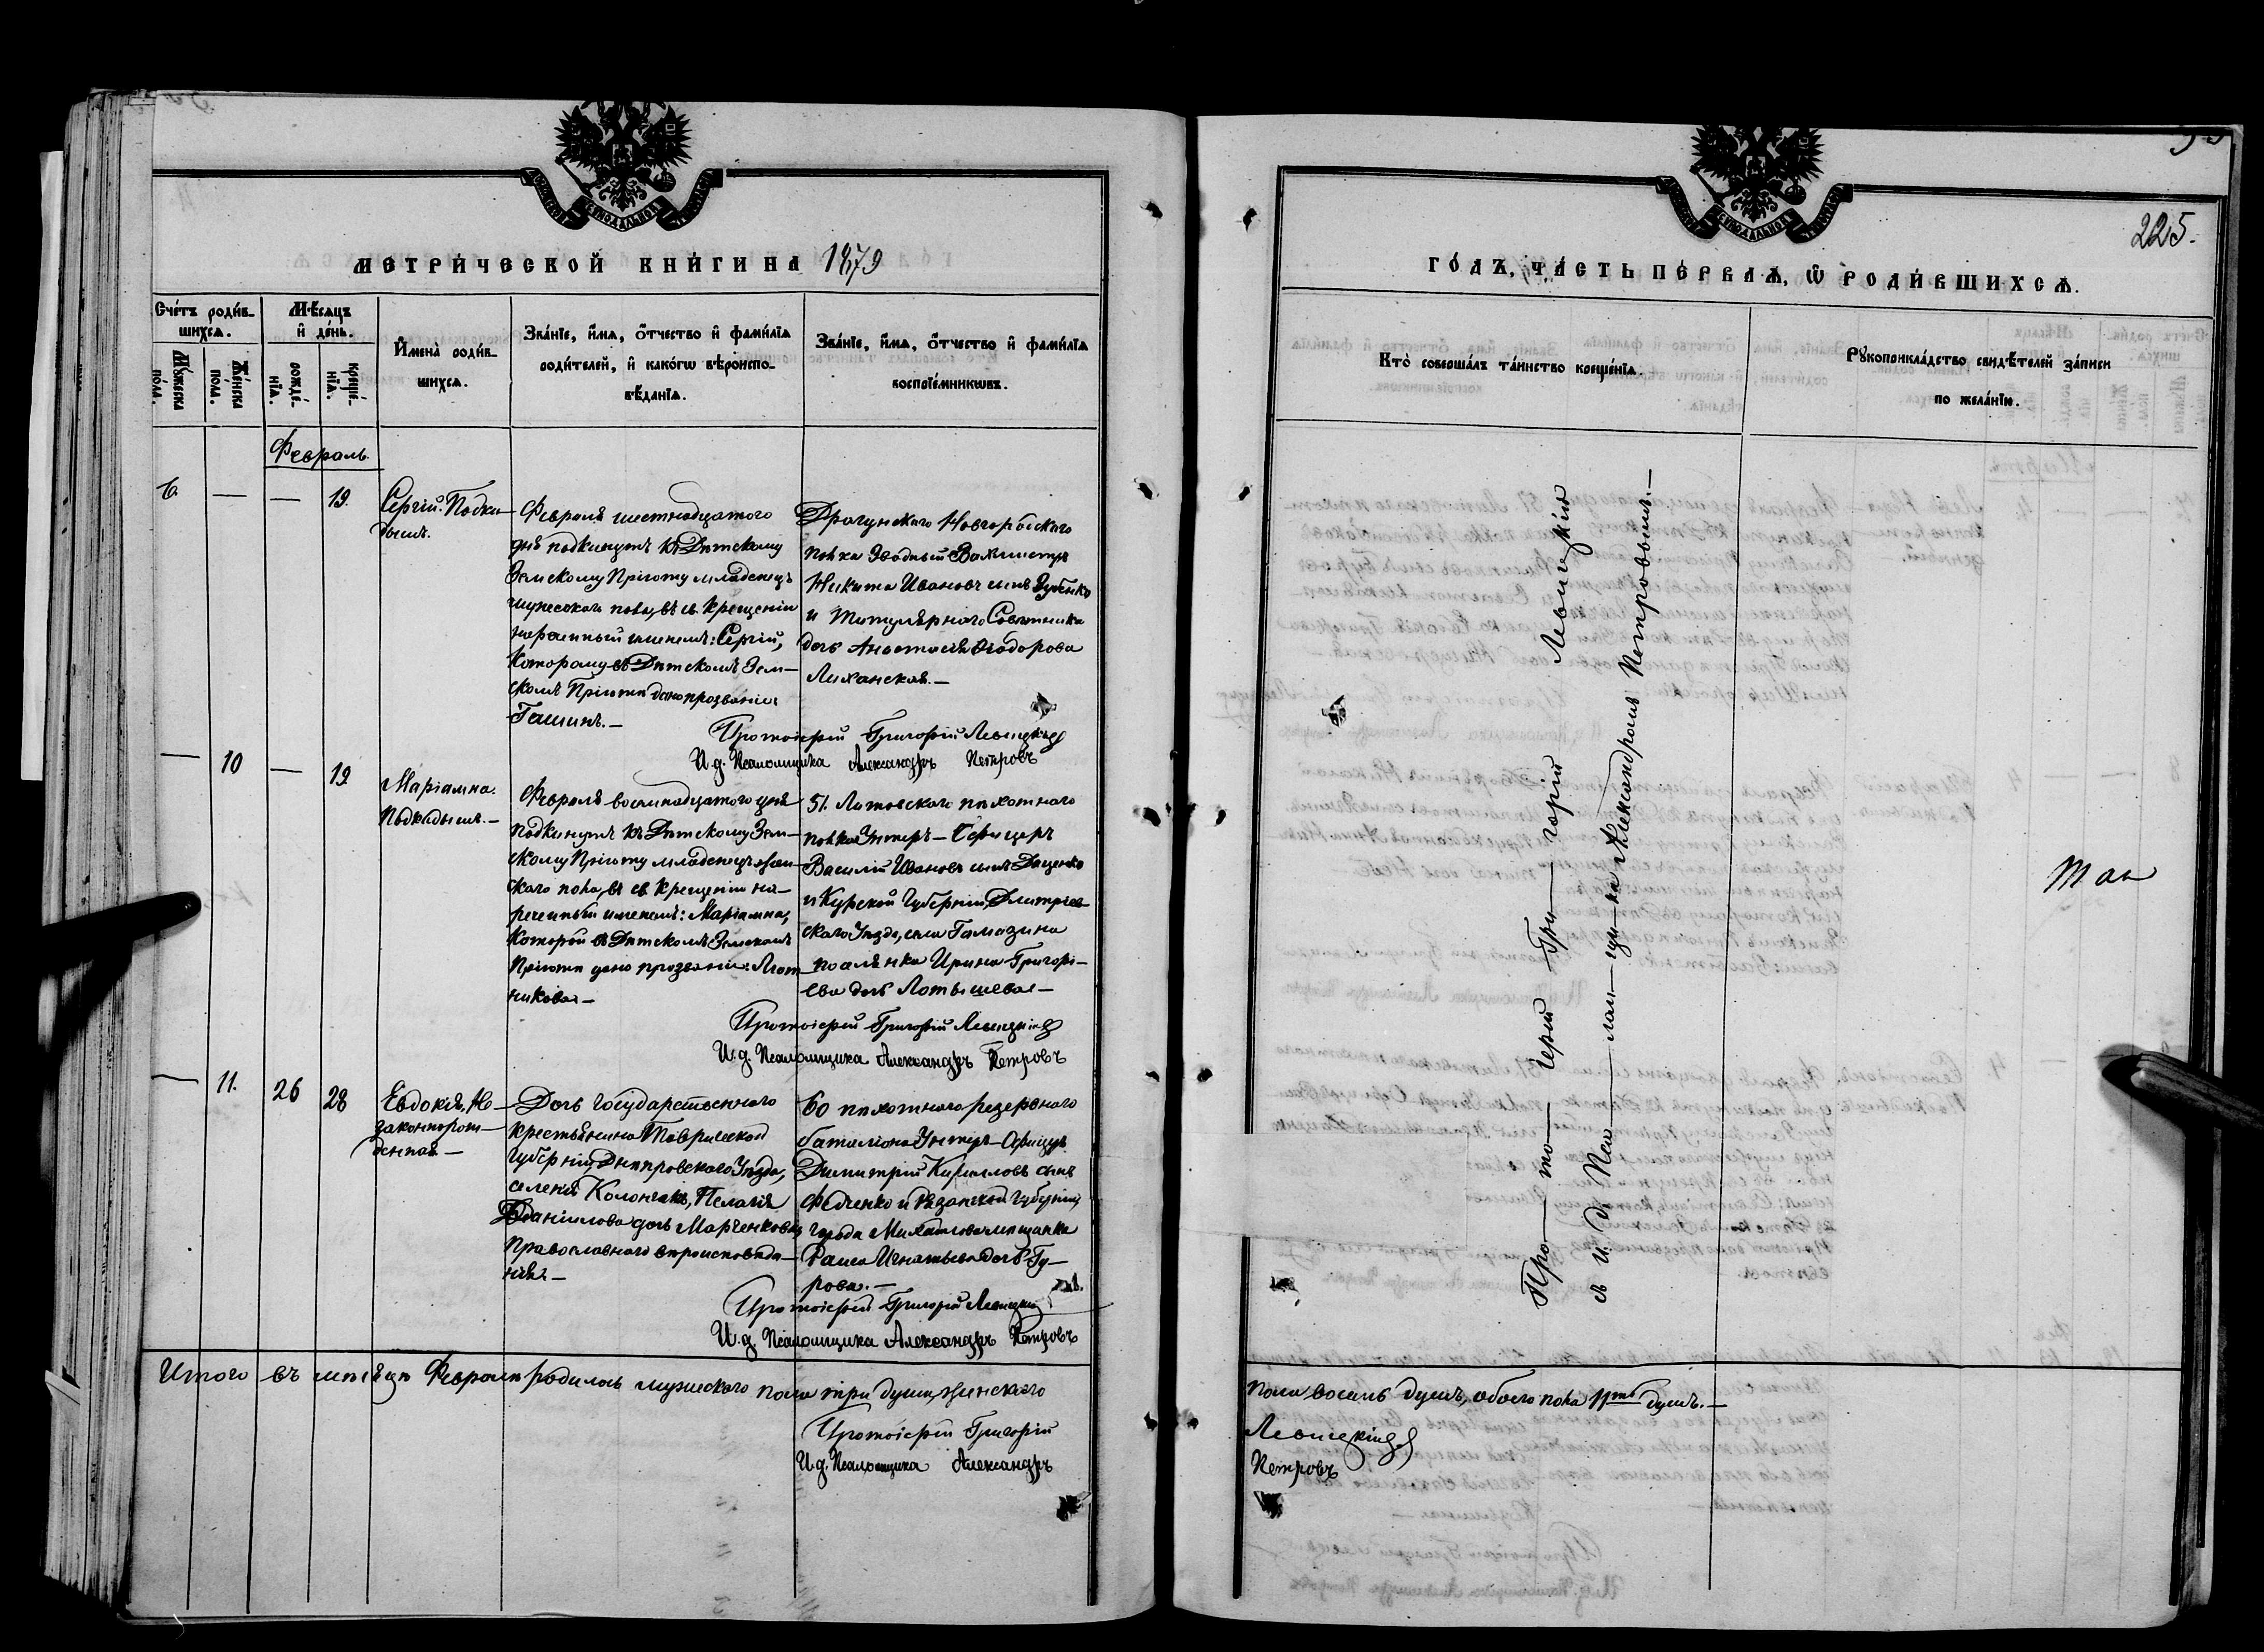 МЕТРИ́ЧЕСКОЙ КНИ́ГИ НА 1879
Счетъ роди́в-
шихся.
Му́жеска
по́ла.
Же́нска
по́ла.
Мѣ́сяцъ
и҆ де́нь.
рожде́-
нїѧ.
креще́-
нїѧ.
И҆мена̀ роди́в-
шихся.
Зва́нїе, и҆́мѧ, ѻ҆́тчество и҆ фами́лїѧ
роди́телей, и҆ како́гѡ вѣ̀роиспо-
вѣ́данїѧ.
Зва́нїе, и҆́мѧ, ѻ҆́тчество и҆ фами́лїѧ
воспрїе́мникѡвъ.
Февраль.
6. — — 19.
Сергій. Подки-
дышъ.
Февраля шестнадцатого
дня подкинутъ къ Дѣтскому
Земскому Пріюту младенецъ
мужескаго пола, въ св. крещеніи
нареченный именемъ: Сергій,
Которому въ Дѣтскомъ Зем-
скомъ Пріютѣ дано прозваніе
Гашинъ.—
Драгунскаго Новгородскаго
полка Зводный Вахмистръ
Никита Ивановъ сынъ Зубенко
и Титулярнаго Совѣтника
дочь Анастасія Ѳеодорова
Лиханская.—
Протоіерей Григорій Левицкій
И.д. Псаломщика Александръ Петровъ
— 10 — 19
Маріамна.
Подкидышъ.—
Февраля восемнадцатого дня
подкинутъ къ Дѣтскому Зем-
скому Пріюту младенецъ жен-
скаго пола, въ св. крещеніи на-
реченный именемъ: Маріамна,
Которой въ Дѣтскомъ Земскомъ
Пріютѣ дано прозваніе:
никова—
51. Литовскаго пѣхотнаго
полка Унтеръ-Офицеръ
Василій Ивановъ сынъ Даценко
и Курской Губерніи, Дмитріев-
скаго Уѣзда, села Гамазина
поселянка Ирина Григорі-
ева дочь Латышева—
Протоіерей Григорій Левицкій
И.д. Псаломщика Александръ Петровъ
— 11. 26 28
Евдокія. Не-
законнорож-
денная—
Дочь Государственнаго
крестьянина Таврической
Губерніи, Днѣпровскаго Уѣзда,
селенія Колончакъ, Пелагія
Даніилова дочь Марченкова,
Православнаго вѣроисповѣда-
нія.—
60 пѣхотнаго резервнаго
баталіона Унтеръ-Офицеръ
Димитрій Кирилловъ сынъ
Федченко и Рязанской Губерніи,
города Михайлова мѣщанка
Раиса Игнатьева дочь Гу-
рова.—
Протоіерей Григорій Левицкій
И.д. Псаломщика Александръ Петровъ
Итого въ мѣсяцѣ Февралѣ родилось мужескаго пола три души, женскаго
Протоіерей Григорій
И.д. Псаломщика Александръ
225.
ГО́ДЪ, ЧА́СТЬ ПЕ́РВАѦ, Ѡ҆ РОДИ́ВШИХСѦ.
Кто̀ соверша́лъ та́инство креще́нїѧ.
Рꙋкоприкла́дство свидѣ́телей за́писи
по жела́нїю.
Про—то—іерей—Гри—горій Левицкій
съ и. д. Пса—лом—щи—ка Александромъ Петровымъ.—
пола восемь душъ, обоего пола 11ть душъ.—
Левицкій
Петровъ